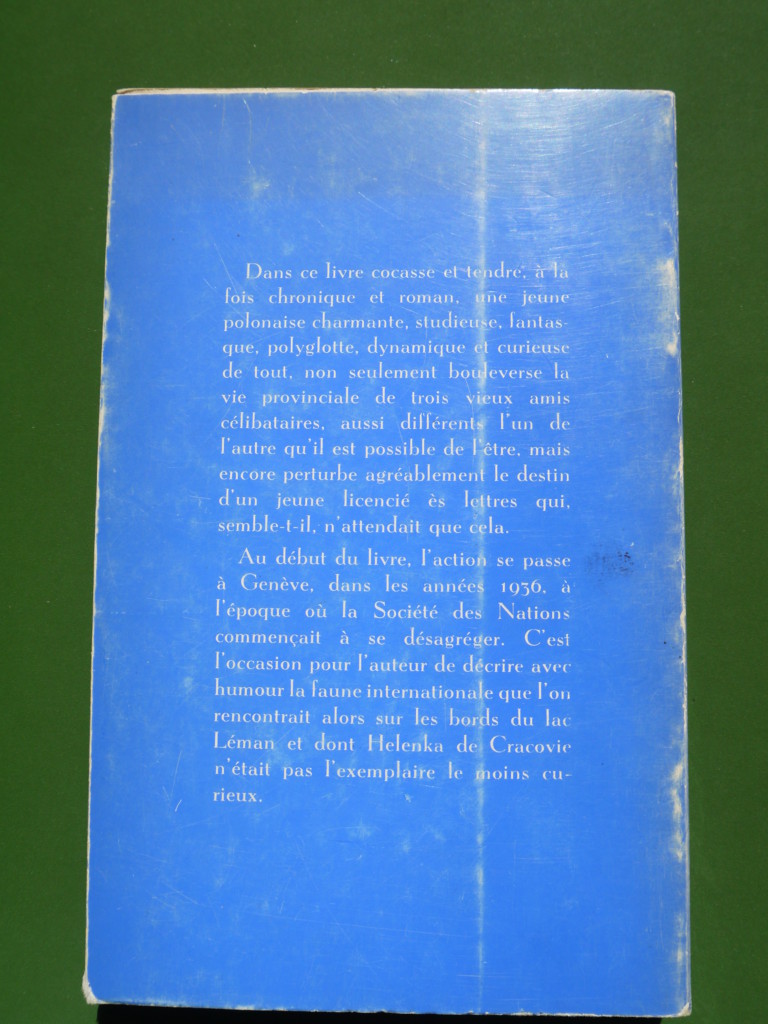 Dans ce livre cocasse et tendre, à la
fois chronique et roman, une jeune
polonaise charmante, studieuse, fantas-
que, polyglotte, dynamique et curieuse
de tout, non seulement bouleverse la
vie provinciale de trois vieux amis
célibataires, aussi différents l'un de
l'autre qu'il est possible de l'être, mais
encore perturbe agréablement le destin
d'un jeune licencié ès lettres qui,
semble-t-il, n'attendait que cela.
Au début du livre, l'action se passe
à Genève, dans les années 1936, à
l'époque où la Société des Nations
commençait à se désagréger. C'est
l'occasion pour l'auteur de décrire avec
humour la faune internationale que l'on
rencontrait alors sur les bords du lac
Léman et dont Helenka de Cracovie
n'était pas l'exemplaire le moins cu-
rieux.